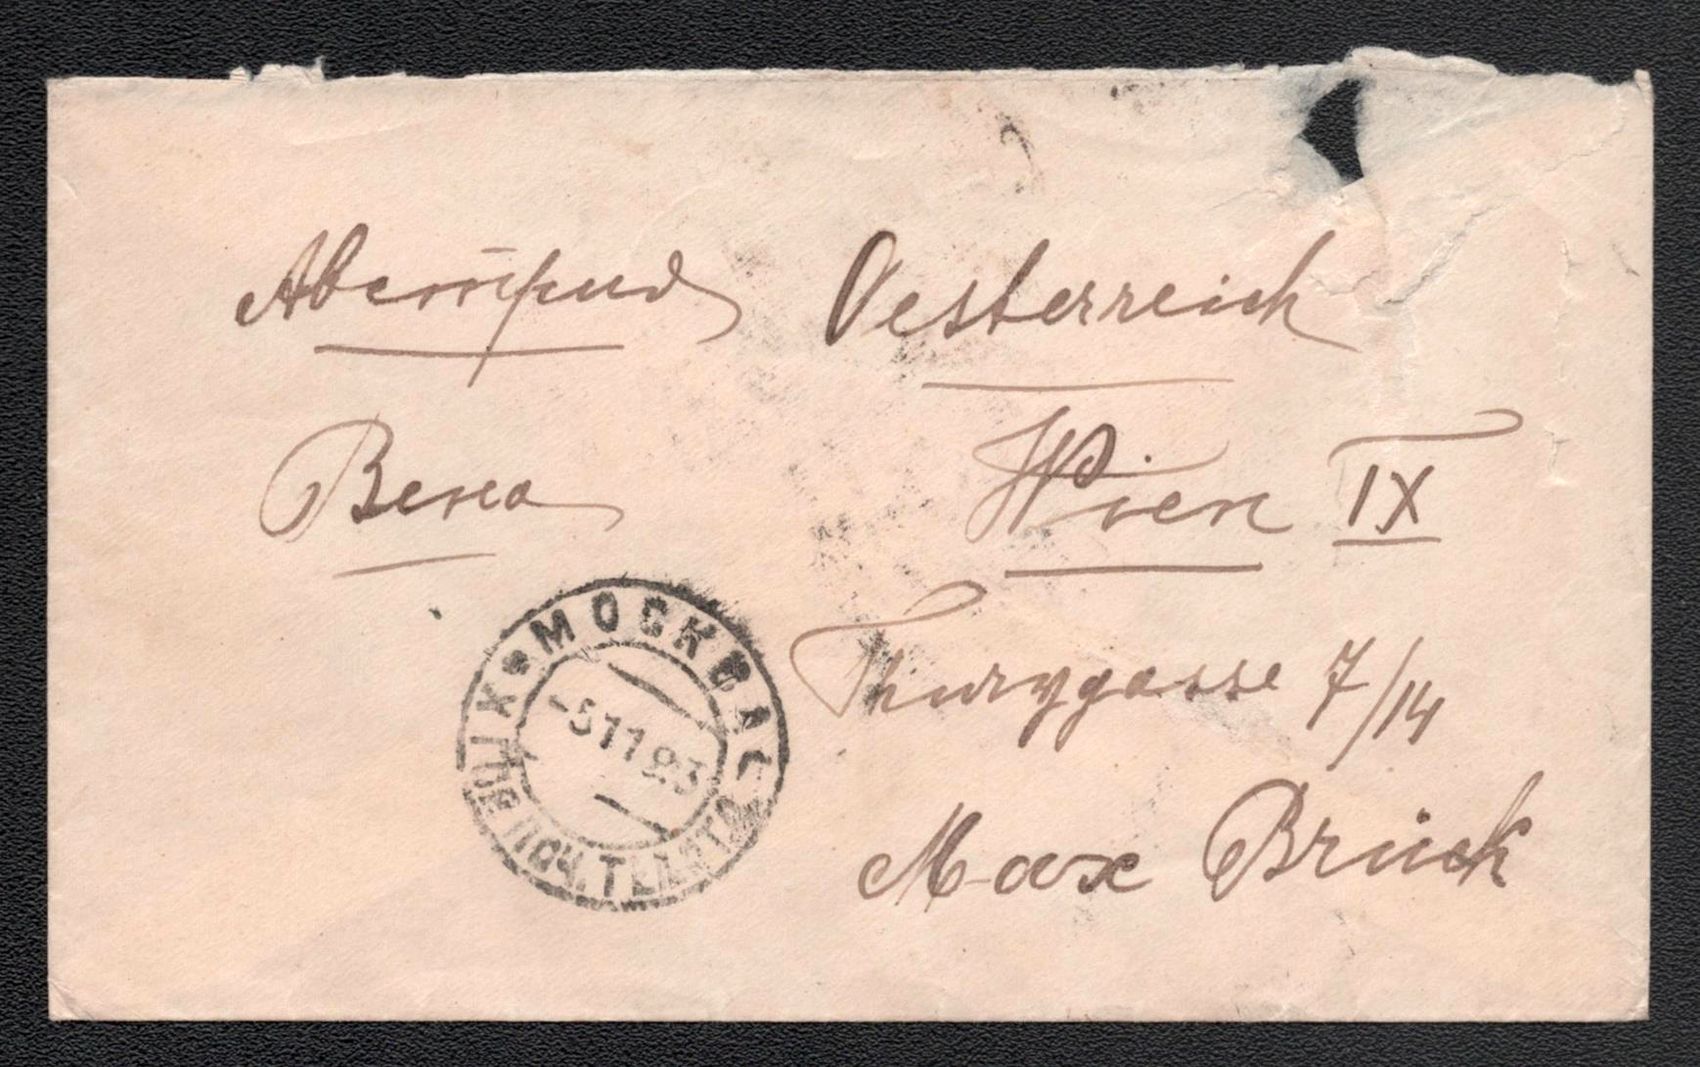 Австрия Oesterreich
Вена Wien IX
Thurygasse 7/14
Max Brück
МОСКВА
-5 11 23